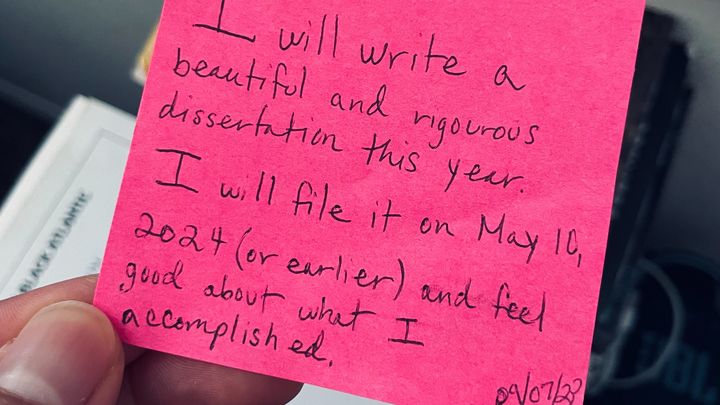 I will write a
beautiful and rigourous
dissertation this year.
I will file it on May 10,
2024 (or earlier) and feel
good about what I
accomplished.
09/07/23
BLACK ATLANTIC